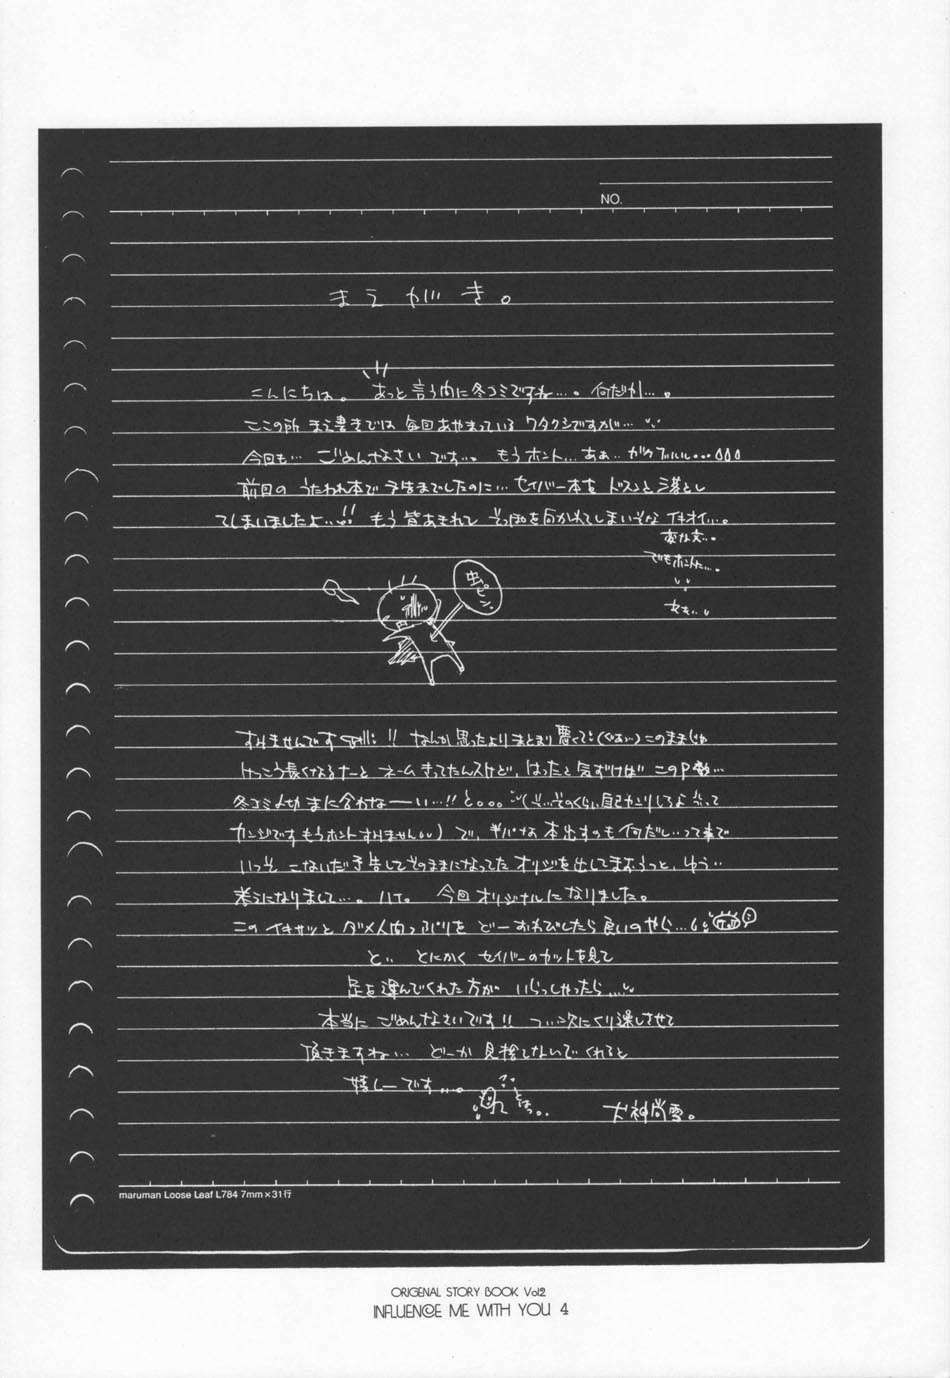 NO.
まえがき。
こんにちは。あっと言う内に冬コミですね…。何だか…。
ここの所 まえ書きでは 毎回あやまっている ワタクシですが…
今回も… ごめんなさい です…。もうホント…あぁ…ガクブルル…
前回の うたわれ本で 予告までしたのに… セイバー本を ドスンと落とし
てしまいましたよ…!! もう皆あきれて そっぽを向かれてしまいそな イキオイ…。
変な文…。
でもホント…。
虫ピン
すみませんです !! なんか思ったよりまとまり悪くて (ぐあい) このままじゃ
けっこう長くなるナーと ネームきってたんスけど、はったと気ずけば このP数…
冬コミ〆切 まに合わなーーい…!! と。。。(そ…そのくらい自己カンリしろよって
カンジです もうホント すみません) で、半パな 本出すのも何だし…って事で
いっそ こないだ予告してそのままになってた オリジを出してまおうっと、ゆう
考えになりまして…。ハイ。 今回オリジナルになりました。
この イキサツと ダメ人間っぷりを どーおわびしたら良いのやら…
と、 とにかく セイバーのカットを見て
足を運んでくれた方が いらっしゃったら…
本当に ごめんなさいです!! つ…次にくり越しさせて
頂きますね… どーか 見捨てないでくれると
嬉しーです…。
犬神尚雪。
maruman Loose Leaf L784 7mm×31行
ORIGENAL STORY BOOK Vol2
INFLUENCE ME WITH YOU 4